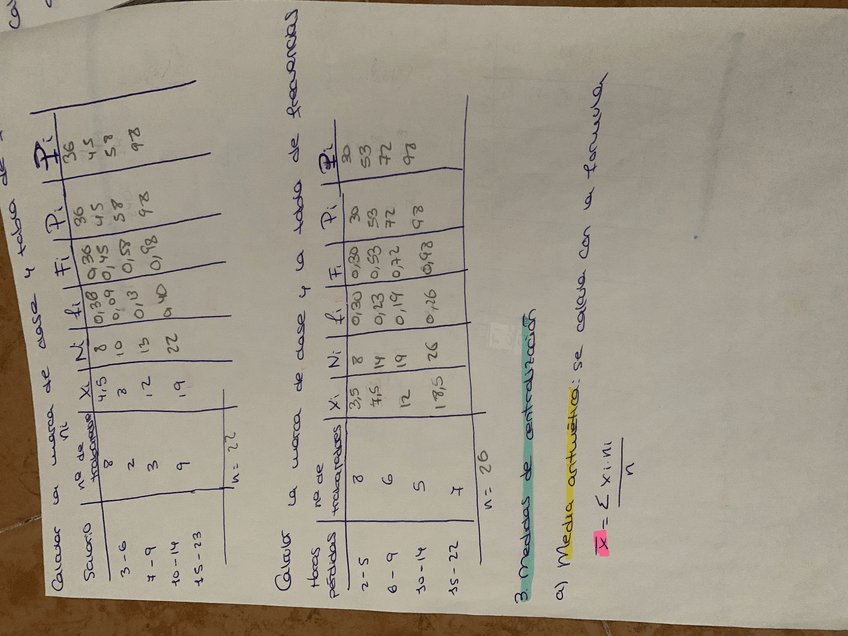 Calcular la marca de clase y tabla de
Salario | ni nº de trabajadores | Xi | Ni | fi | Fi | Pi | Pi
3-6 | 8 | 4,5 | 8 | 0,36 | 0,36 | 36 | 36
7-9 | 2 | 8 | 10 | 0,09 | 0,45 | 45 | 45
10-14 | 3 | 12 | 13 | 0,13 | 0,58 | 58 | 58
15-23 | 9 | 19 | 22 | 0,40 | 0,98 | 98 | 98
n=22
Calcular la marca de clase y la tabla de frecuencias
Horas pérdidas | nº de trabajadores | Xi | Ni | fi | Fi | Pi | Pi
2-5 | 8 | 3,5 | 8 | 0,30 | 0,30 | 30 | 30
6-9 | 6 | 7,5 | 14 | 0,23 | 0,53 | 53 | 53
10-14 | 5 | 12 | 19 | 0,19 | 0,72 | 72 | 72
15-22 | 7 | 18,5 | 26 | 0,26 | 0,98 | 98 | 98
n=26
3. Medidas de centralización
a) Media aritmética: se calcula con la formula
x̄ = Σ xi ni / n